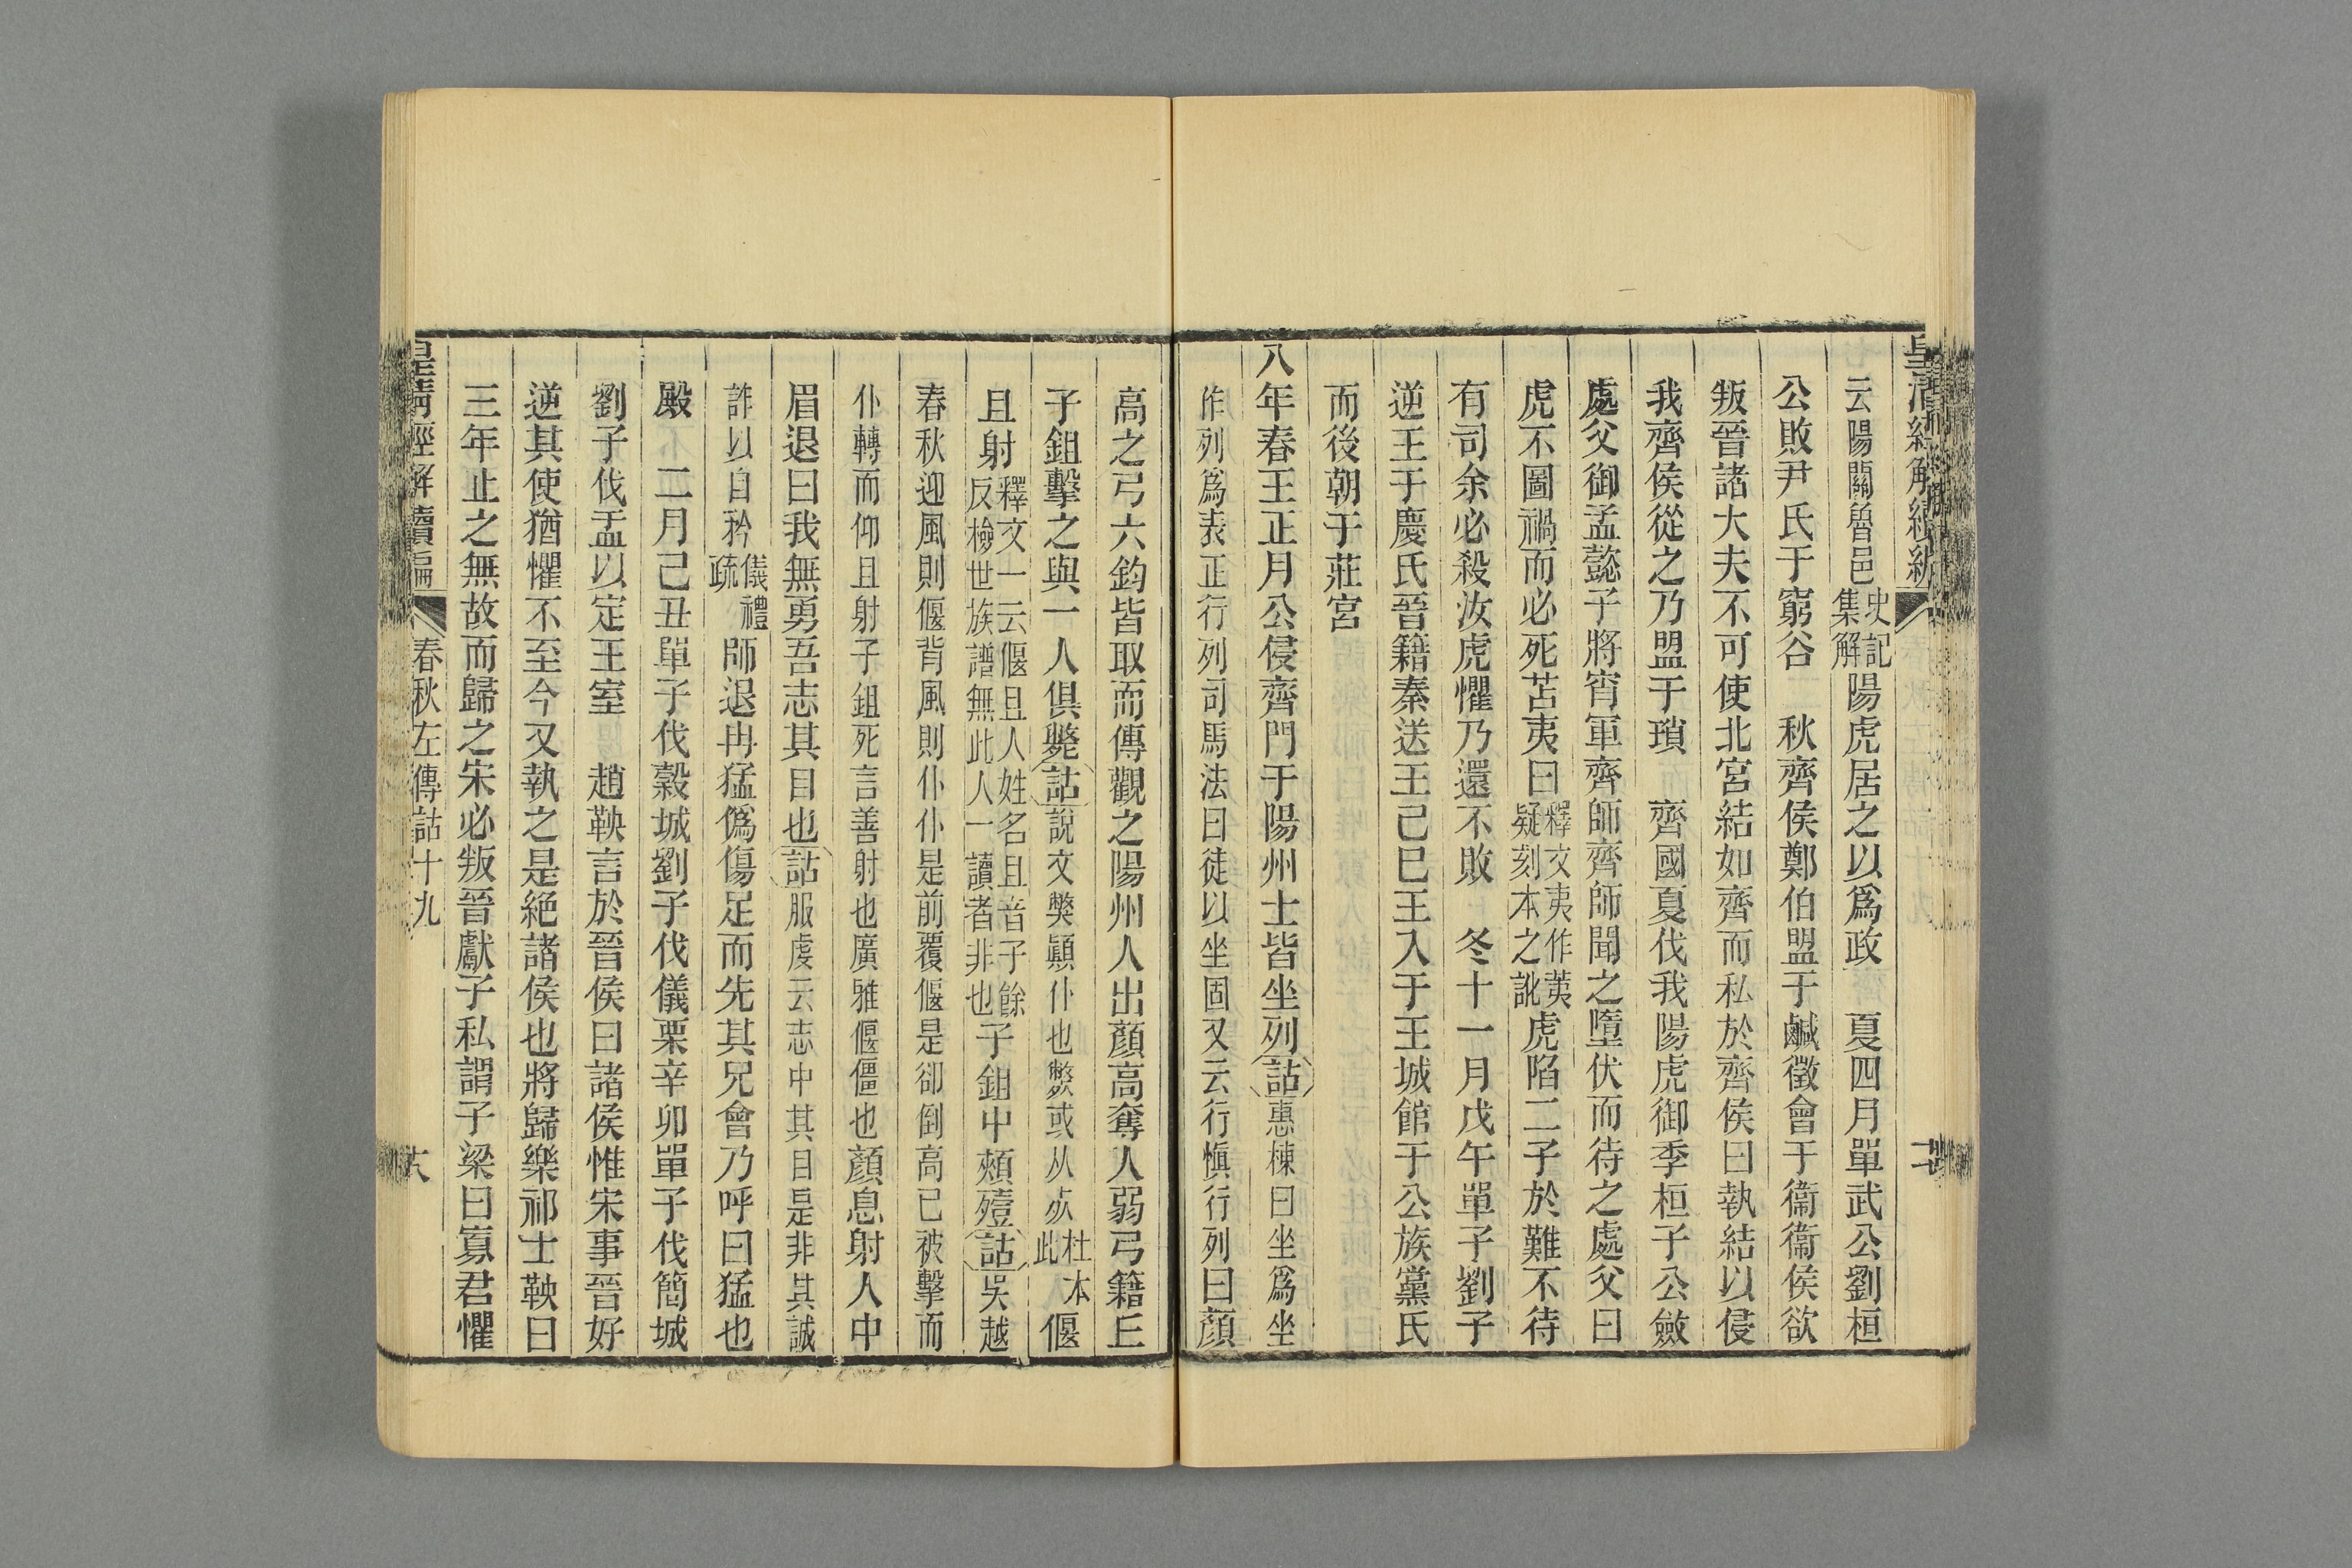 皇清經解續編
云陽關魯邑史記集解陽虎居之以爲政　夏四月單武公劉桓
公敗尹氏于窮谷　秋齊侯鄭伯盟于鹹徵會于衞衞侯欲
叛晉諸大夫不可使北宮結如齊而私於齊侯曰執結以侵
我齊侯從之乃盟于瑣　齊國夏伐我陽虎御季桓子公斂
處父御孟懿子將宵軍齊師齊師聞之墮伏而待之處父曰
虎不圖禍而必死苫夷曰釋文夷作荑疑刻本之訛虎陷二子於難不待
有司余必殺汝虎懼乃還不敗　冬十一月戊午單子劉子
逆王于慶氏晉籍秦送王己巳王入于王城館于公族黨氏
而後朝于莊宮
八年春王正月公侵齊門于陽州士皆坐列詁惠棟曰坐爲坐
作列爲表正行列司馬法曰徒以坐固又云行愼行列曰顏
高之弓六鈞皆取而傳觀之陽州人出顏高奪人弱弓籍丘
子鉏擊之與一人俱斃詁說文獘顚仆也斃或从㱁杜本此偃
且射釋文一云偃且人姓名且音子餘反檢世族譜無此人一讀者非也子鉏中頰殪詁吳越
春秋迎風則偃背風則仆仆是前覆偃是卻倒高已被擊而
仆轉而仰且射子鉏死言善射也廣雅偃僵也顏息射人中
眉退曰我無勇吾志其目也詁服虔云志中其目是非其誠
詐以自矜儀禮疏師退冉猛僞傷足而先其兄會乃呼曰猛也
殿　二月己丑單子伐穀城劉子伐儀栗辛卯單子伐簡城
劉子伐盂以定王室　趙鞅言於晉侯曰諸侯惟宋事晉好
逆其使猶懼不至今又執之是絕諸侯也將歸樂祁士鞅曰
三年止之無故而歸之宋必叛晉獻子私謂子梁曰寡君懼
皇淸經解續編　春秋左傳詁十九